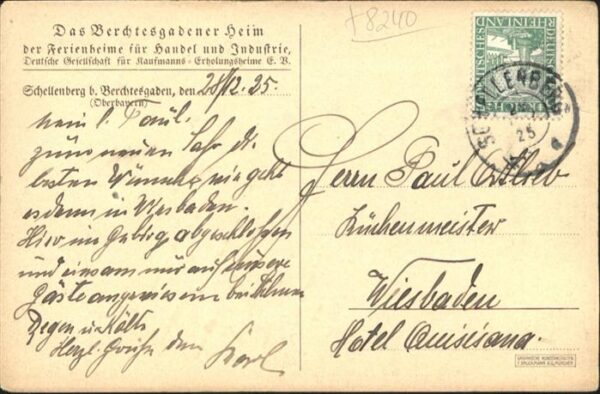 +8240
Das Berchtesgadener Heim
der Ferienheime für Handel und Industrie,
Deutsche Gesellschaft für Kaufmanns-Erholungsheime E. V.
Schellenberg b. Berchtesgaden, den 28/12. 25.
(Oberbayern)
Mein l. Paul.
zum neuen Jahr die
besten Wünsche, wie geht
es denn in Wiesbaden.
Hier im Gebirg abgeschlossen
und einsam nur auf unsere
Gäste angewiesen bei
Regen u. Kälte
Herzl. Grüße dein
Karl
DEUTSCHES REICH
RHEINLAND
SCHELLENBERG
25
Herrn Paul
Küchenmeister
Wiesbaden
Hotel Quisisana.